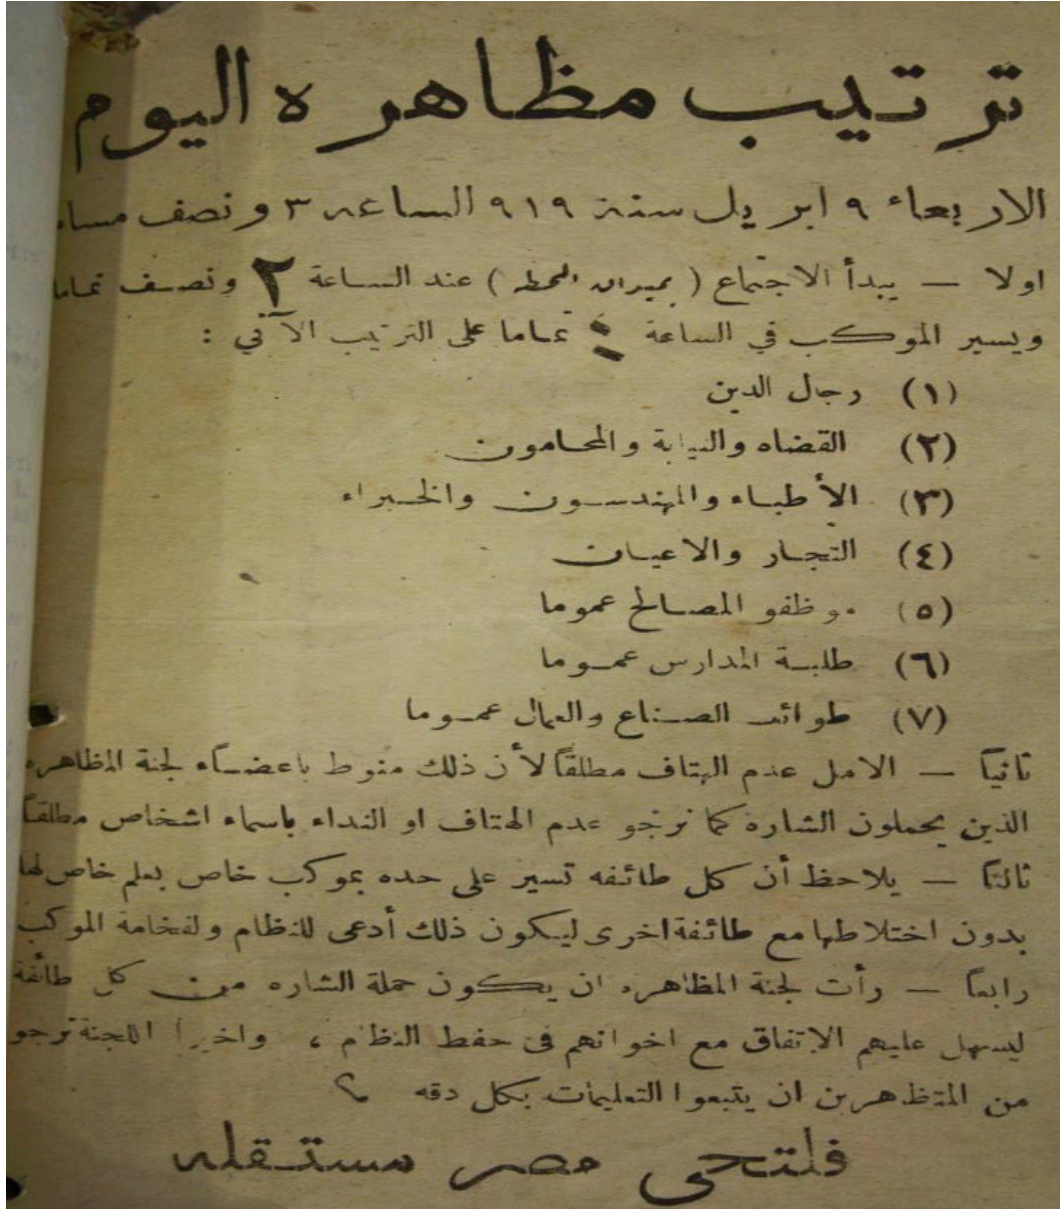 ترتيب مظاهره اليوم
الاربعاء ٩ ابريل سنة ٩١٩ الساعه ٣ ونصف مساء
اولا — يبدأ الاجتماع ( بميدان المحطه ) عند الساعة ٢ ونصف تماما
ويسير الموكب في الساعة تماما على الترتيب الآتي :
(١) رجال الدين
(٢) القضاه والنيابة والمحامون
(٣) الأطباء والمهندسون والخبراء
(٤) التجار والاعيان
(٥) موظفو المصالح عموما
(٦) طلبة المدارس عموما
(٧) طوائف الصناع والعمال عموما
ثانياً — الامل عدم الهتاف مطلقاً لأن ذلك منوط باعضاء لجنة المظاهره
الذين يحملون الشاره كما نرجو عدم الهتاف او النداء باسماء اشخاص مطلقاً
ثالثاً — يلاحظ أن كل طائفه تسير على حده بموكب خاص بعلم خاص لها
بدون اختلاطها مع طائفة اخرى ليكون ذلك أدعى للنظام ولفخامة الموكب
رابعاً — رأت لجنة المظاهره ان يكون حملة الشاره من كل طائفة
ليسهل عليهم الاتفاق مع اخوانهم في حفظ النظام ، واخيرا اللجنة ترجو
من المتظاهرين ان يتبعوا التعليمات بكل دقه
فلتحى مصر مستقله